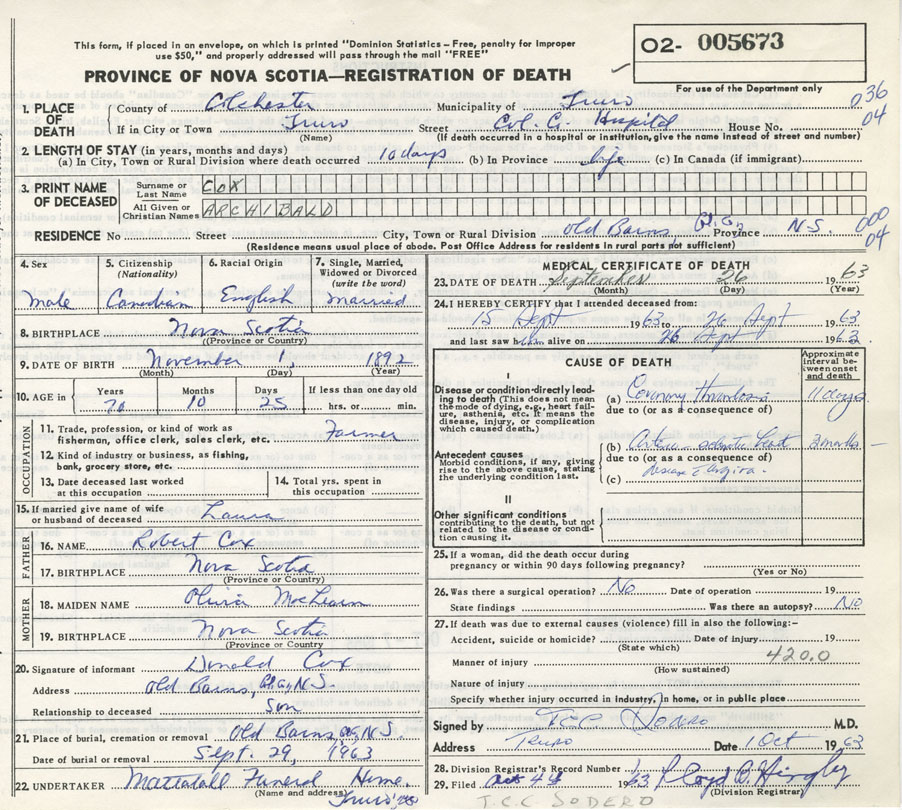 This form, if placed in an envelope, on which is printed "Dominion Statistics - Free, penalty for improper
use $50," and properly addressed will pass through the mail "FREE"
O2- 005673
For use of the Department only
PROVINCE OF NOVA SCOTIA—REGISTRATION OF DEATH
036
04
1. PLACE OF DEATH County of Colchester Municipality of Truro
If in City or Town Truro (Name) Street Col. C. Hospital House No.
(If death occurred in a hospital or institution, give the name instead of street and number)
2. LENGTH OF STAY (in years, months and days)
(a) In City, Town or Rural Division where death occurred 10 days (b) In Province life (c) In Canada (if immigrant)
3. PRINT NAME OF DECEASED Surname or Last Name COX
All Given or Christian Names ARCHIBALD
RESIDENCE No Street City, Town or Rural Division Old Barns, Province N.S. 000
04
(Residence means usual place of abode. Post Office Address for residents in rural parts not sufficient)
4. Sex Male
5. Citizenship (Nationality) Canadian
6. Racial Origin English
7. Single, Married, Widowed or Divorced (write the word) Married
8. BIRTHPLACE Nova Scotia
(Province or Country)
9. DATE OF BIRTH November 1, 1892
(Month) (Day) (Year)
10. AGE in Years 70 Months 10 Days 25 If less than one day old hrs. or min.
OCCUPATION
11. Trade, profession, or kind of work as fisherman, office clerk, sales clerk, etc. Farmer
12. Kind of industry or business, as fishing, bank, grocery store, etc.
13. Date deceased last worked at this occupation
14. Total yrs. spent in this occupation
15. If married give name of wife or husband of deceased Laura
FATHER
16. NAME Robert Cox
17. BIRTHPLACE Nova Scotia
(Province or Country)
MOTHER
18. MAIDEN NAME Olivia
19. BIRTHPLACE Nova Scotia
(Province or Country)
20. Signature of informant Donald Cox
Address Old Barns, N.S.
Relationship to deceased Son
21. Place of burial, cremation or removal Old Barns, N.S.
Date of burial or removal Sept. 29, 1963
22. UNDERTAKER Mattatall Funeral Home.
(Name and address) Truro, N.S.
MEDICAL CERTIFICATE OF DEATH
23. DATE OF DEATH September 26 1963
(Month) (Day) (Year)
24. I HEREBY CERTIFY that I attended deceased from:
15 Sept 1963 to 26 Sept 1963
and last saw him alive on 26 Sept 1963
CAUSE OF DEATH
Approximate interval between onset and death
I
Disease or condition directly leading to death (This does not mean the mode of dying, e.g., heart failure, asthenia, etc. It means the disease, injury, or complication which caused death.)
(a) Coronary Thrombosis 11 days
due to (or as a consequence of)
Antecedent causes
Morbid conditions, if any, giving rise to the above cause, stating the underlying condition last.
(b) Arterio sclerotic heart 2 months —
due to (or as a consequence of)
disease angina.
(c)
II
Other significant conditions contributing to the death, but not related to the disease or condition causing it.
25. If a woman, did the death occur during pregnancy or within 90 days following pregnancy?
(Yes or No)
26. Was there a surgical operation? No Date of operation 19
State findings Was there an autopsy? No
27. If death was due to external causes (violence) fill in also the following:-
Accident, suicide or homicide? Date of injury 19
(State which)
420.0
Manner of injury
(How sustained)
Nature of injury
Specify whether injury occurred in Industry, in home, or in public place
Signed by TCC Sodero M.D.
Address Truro Date 1 Oct 1963
28. Division Registrar's Record Number
29. Filed Oct 4 1963
(Division Registrar)
T.C.C SODERO